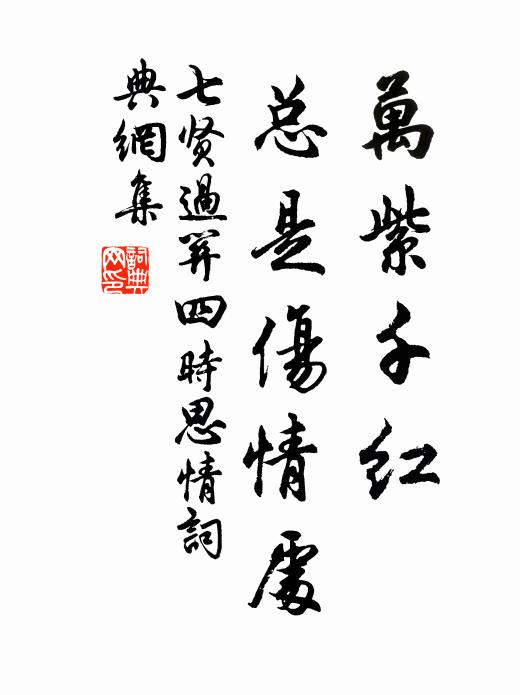 萬紫千红
总是傷情處
七贤過關四時思情詞
典網集
詞典
网印